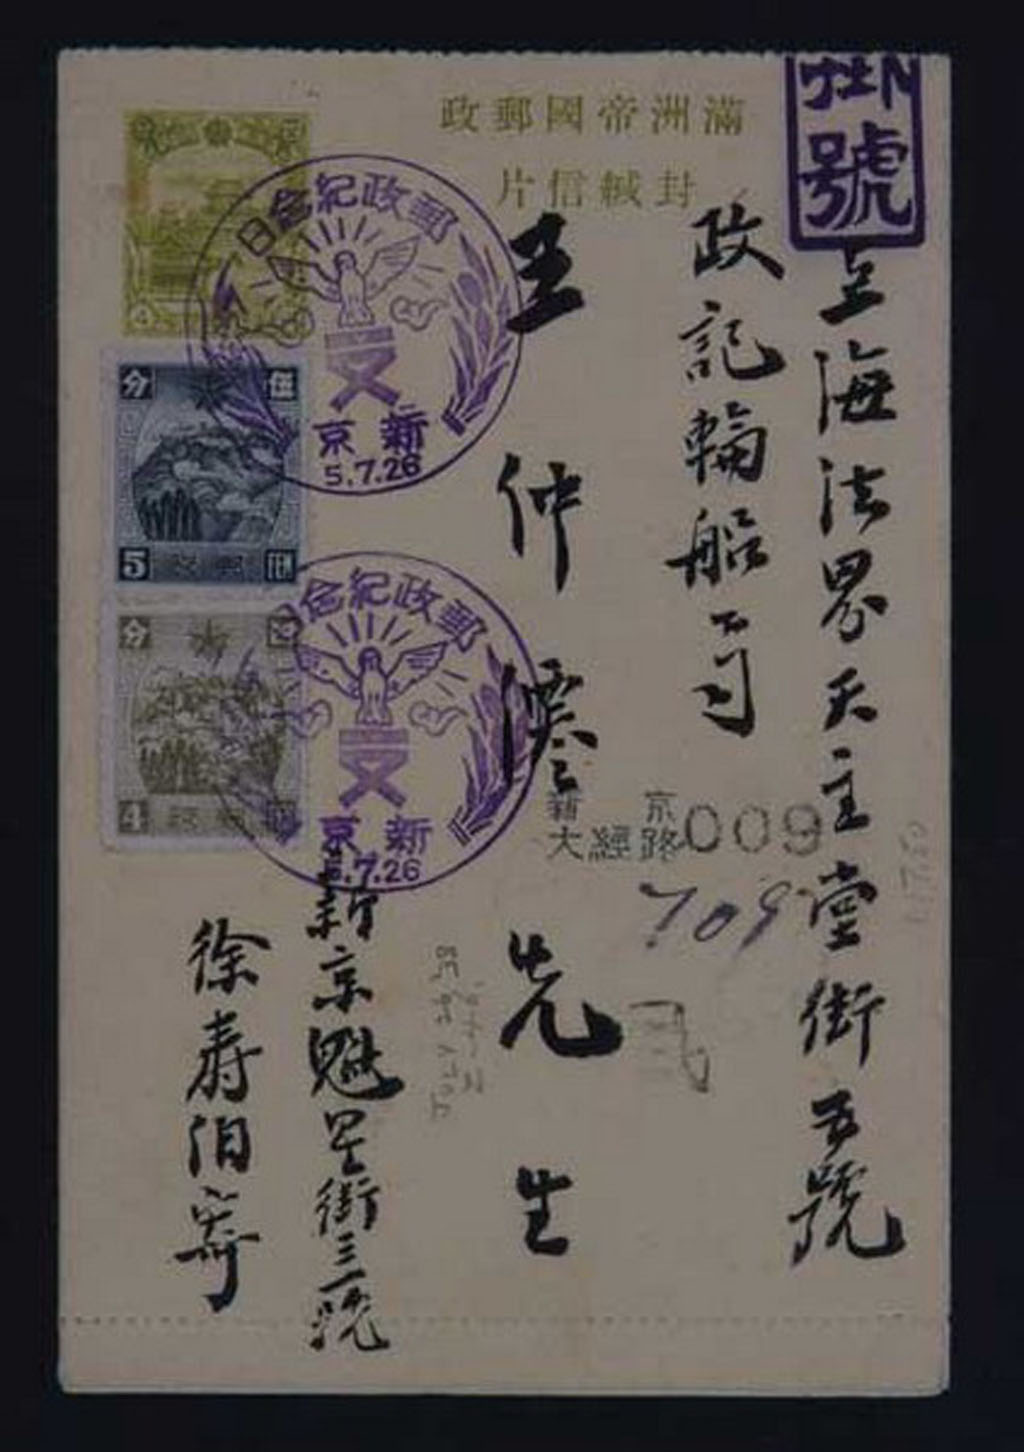 滿洲帝國郵政
封緘信片
掛號
上海法界天主堂街五號
政記輪船公司
王仲 先生
新京魁星街三號
徐寿伯寄
郵政紀念日
新京
5.7.26
郵政紀念日
新京
5.7.26
新京
大經路009
709
分 伍
5
分 四
4
4